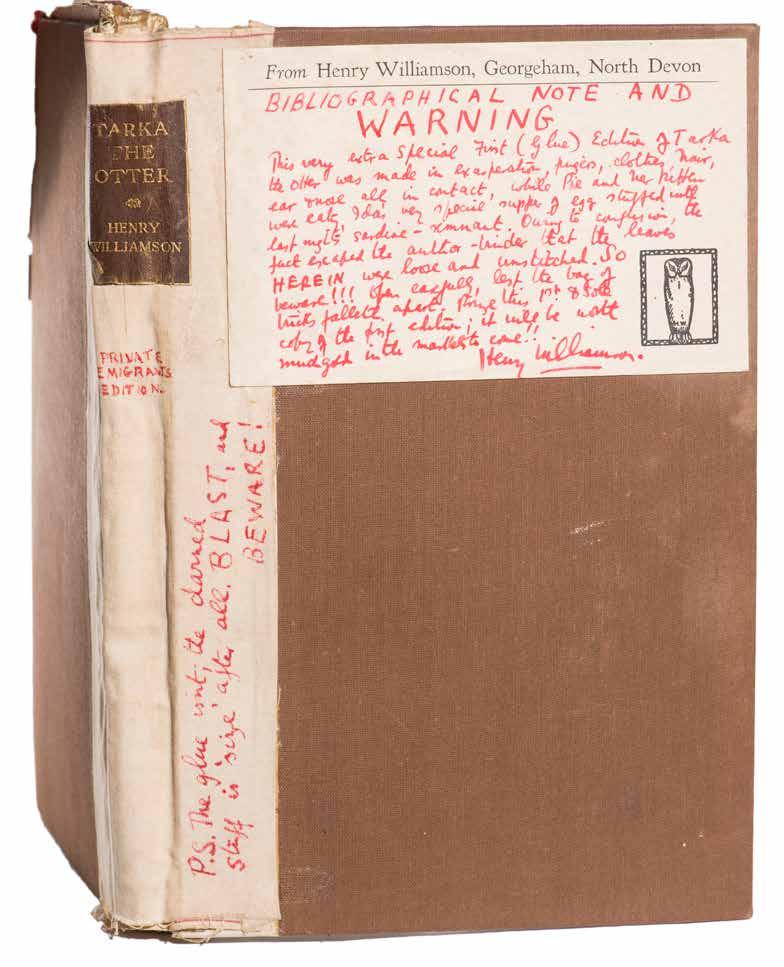 TARKA
THE
OTTER
HENRY
WILLIAMSON
PRIVATE
EMIGRANTS
EDITION
From Henry Williamson, Georgeham, North Devon
BIBLIOGRAPHICAL NOTE AND
WARNING
This very extra Special First (Glue) Edition of Tarka
the Otter was made in exasperation, fingers, clothes, hair,
ear & nose all in contact, while Pie and her kitten
were eating Ida's very special supper of egg stuffed with
last night's sardine-remnant. Owing to confusion, the
fact escaped the author-binder that the leaves
HEREIN were loose and unstitched. SO
beware!!! Open carefully lest the bag of
tricks falleth apart. Prize this 1st & Sole
copy of the first edition; it will be worth
mudgold in the markets to come!!
Henry Williamson.
P.S. The glue isn't; the darned
stuff is 'size' after all. BLAST, and
BEWARE!